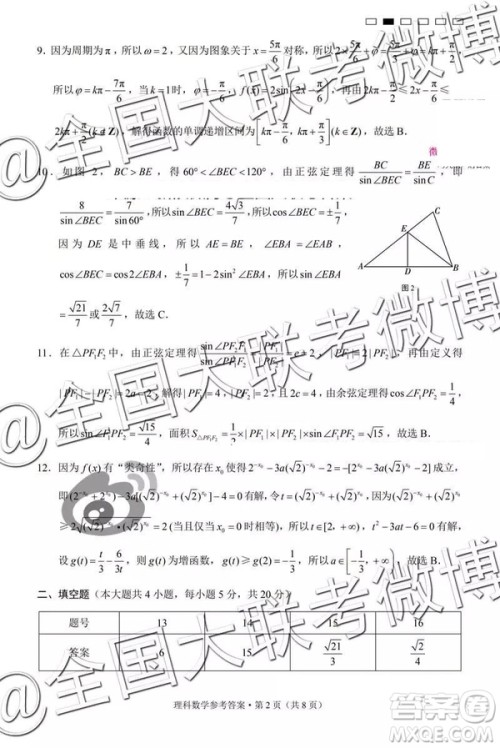 9. 因为周期为π，所以ω=2，又因为图象关于x=5π/6对称，所以2×5π/6+φ=kπ+π/2，
所以φ=kπ-7π/6，当k=1时，φ=-π/6，f(x)=2sin(2x-π/6)，再由2kπ-π/2≤2x-π/6≤
2kπ+π/2(k∈Z)，解得函数的单调递增区间为[kπ-π/6, kπ+π/3](k∈Z)，故选B．
10. 如图2，BC>BE，得60°<∠BEC<120°，由正弦定理得BC/sin∠BEC=BE/sin C，即
8/sin∠BEC=7/sin60°，所以sin∠BEC=4√3/7，所以cos∠BEC=±1/7，
因为DE是中垂线，所以AE=BE，∠EBA=∠EAB，
cos∠BEC=cos2∠EBA，±1/7=1-2sin²∠EBA，所以sin∠EBA
=√21/7或2√7/7，故选C．
A
B
C
D
E
图2
11. 在△PF₁F₂中，由正弦定理得sin∠PF₂F₁/sin∠PF₁F₂=|PF₁|/|PF₂|=2，所以|PF₁|=2|PF₂|，再由定义得
|PF₁|-|PF₂|=2a=2，解得|PF₁|=4，|PF₂|=2，且2c=4，由余弦定理得cos∠F₁PF₂=1/4，
所以sin∠F₁PF₂=√15/4，面积S△PF₁F₂=1/2×|PF₁|×|PF₂|×sin∠F₁PF₂=√15，故选B．
12. 因为f(x)有“类奇性”，所以存在x₀使得2^(-x₀)-3a(√2)^(-x₀)-2=-[2^(x₀)-3a(√2)^(x₀)-2]成立，
即(2^(-x₀)+2^(x₀))-3a[(√2)^(x₀)+(√2)^(-x₀)]-4=0有解，令t=(√2)^(x₀)+(√2)^(-x₀)
≥2√((√2)^(x₀)·(√2)^(-x₀))=2(当且仅当x₀=0时取等号)，所以t∈[2，+∞)，t²-3at-6=0有解，
设g(t)=t/3-6/3t，则g(t)为增函数，g(t)≥g(2)=-1/3，所以a∈[-1/3，+∞)，故选B．
二、填空题（本大题共4小题，每小题5分，共20分）
题号 13 14 15 16
答案 6 15 √21/3 √2/4
理科数学参考答案·第2页（共8页）
@全国大联考微博
@全国大联考微博
答案圈